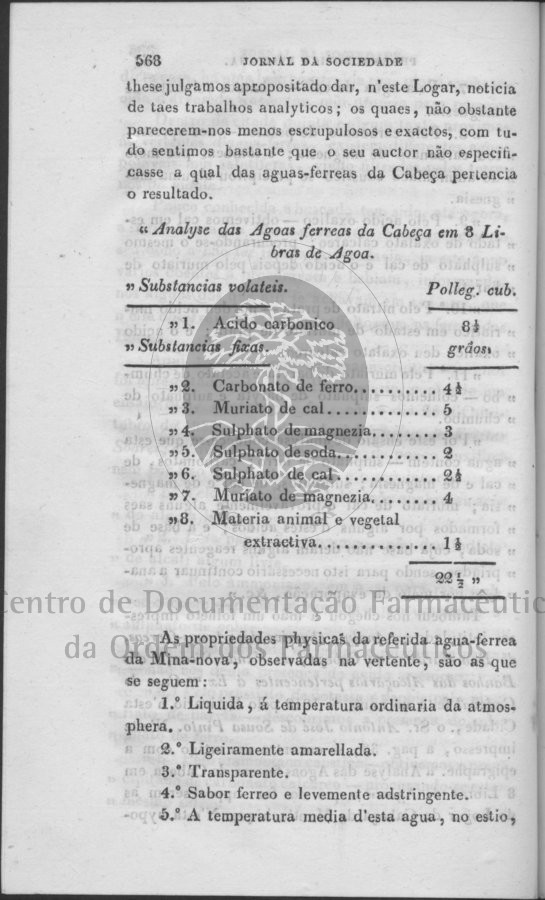 568 JORNAL DA SOCIEDADE
these julgamos apropositado dar, n'este Logar, noticia
de taes trabalhos analyticos; os quaes, não obstante
parecerem-nos menos escrupulosos e exactos, com tu-
do sentimos bastante que o seu auctor não especifi-
casse a qual das aguas-ferreas da Cabeça pertencia
o resultado.
« Analyse das Agoas ferreas da Cabeça em 8 Li-
bras de Agoa.
» Substancias volateis. Polleg. cub.
» 1. Acido carbonico 8½
» Substancias fixas. grãos.
» 2. Carbonato de ferro.......... 4½
» 3. Muriato de cal............. 5
» 4. Sulphato de magnezia........ 3
» 5. Sulphato de soda............ 2
» 6. Sulphato de cal............. 2½
» 7. Muriato de magnezia........ 4
» 8. Materia animal e vegetal
extractiva.............. 1½
22½ »
Centro de Documentação Farmacêutica
da Ordem dos Farmacêuticos
As propriedades physicas da referida agua-ferrea
da Mina-nova, observadas na vertente, são as que
se seguem:
1.° Liquida, á temperatura ordinaria da atmos-
phera.
2.° Ligeiramente amarellada.
3.° Transparente.
4.° Sabor ferreo e levemente adstringente.
5.° A temperatura media d'esta agua, no estio,